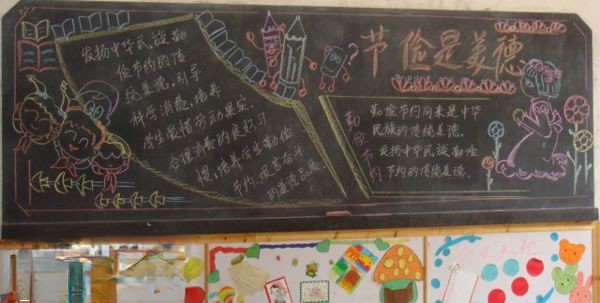 节俭是美德
发扬中华民族勤
俭节约的传
统美德,引导
科学消费,培养
学生爱惜劳动果实,
合理消费的良好习
惯,培养学生勤俭
节约、艰苦奋斗
的道德品质
勤俭节约
勤俭节约向来是中华
民族的传统美德。
发扬中华民族勤俭
节约的传统美德。